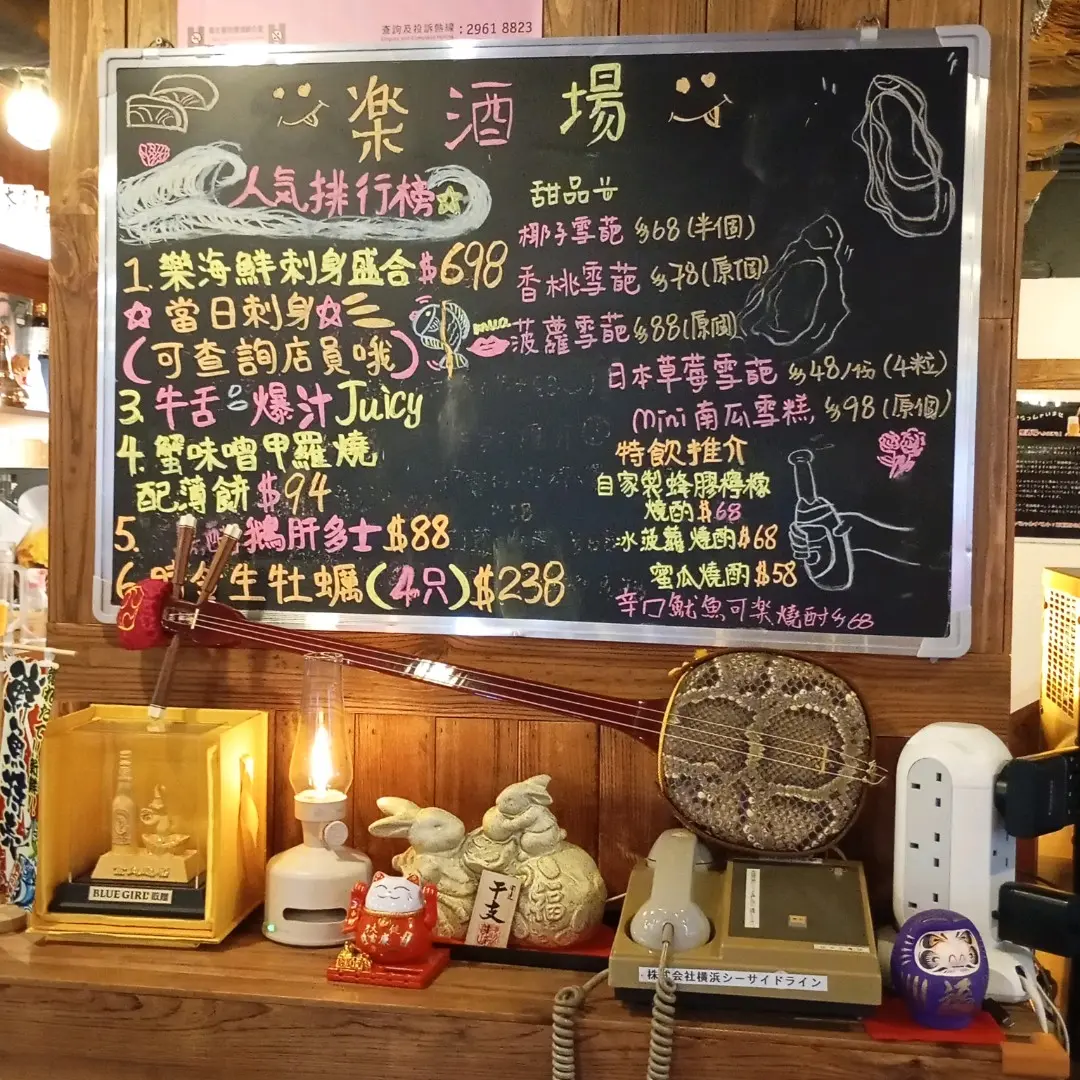 查詢及投訴熱線：2961 8823
楽酒場
人気排行榜
1. 樂海鮮刺身盛合 $698
當日刺身
(可查詢店員哦)
3. 牛舌 爆汁 Juicy
4. 蟹味噌甲羅燒
配薄餅 $94
5. 鵝肝多士 $88
6. 生牡蠣(4只) $238
甜品
椰子雪葩 $68 (半個)
香桃雪葩 $78 (原個)
mua
菠蘿雪葩 $88 (原個)
日本草莓雪葩 $48/份 (4粒)
mini 南瓜雪糕 $98 (原個)
特飲推介
自家製蜂膠檸檬
燒酌 $68
冰菠蘿燒酌 $68
蜜瓜燒酌 $58
辛口魷魚可楽燒酎 $68
BLUE GIRL 敬贈
干支
福
株式会社横浜シーサイドライン
福